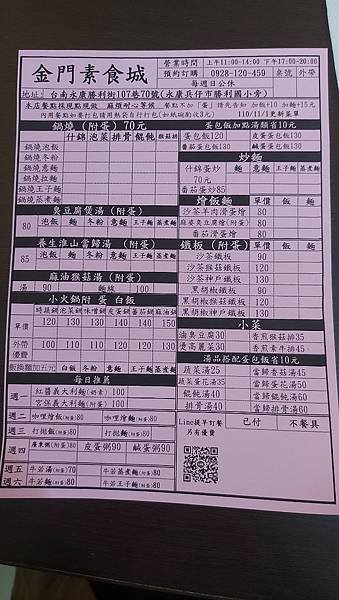 金門素食城
營業時間 上午11:00-14:00 下午17:00-20:00
預約訂購 0928-120-459 桌號 外帶
每週日公休
地址: 台南永康勝利街107巷70號(永康兵仔市勝利國小旁)
本店餐點採現點現做 麻煩耐心等候 餐點不加「蛋」請先告知 加飯+10 加麵+15元
內用餐點如要打包請用紙袋自行打包(如紙碗酌收3元) 110/11/1更新菜單
鍋燒(附蛋)70元
什錦 泡菜 排骨 餛飩 猴菇排
鍋燒泡飯
鍋燒冬粉
鍋燒意麵
鍋燒拉麵
鍋燒王子麵
鍋燒蒸煮麵
臭豆腐煲湯(附蛋)
80 泡飯 麵 冬粉 意麵 王子麵 蒸煮麵
養生淮山當歸湯(附蛋)
85 泡飯 麵 冬粉 意麵 王子麵 蒸煮麵
麻油猴菇湯(附蛋)
湯 90 麵線 100
小火鍋附 蛋 白飯
單價 120 130 130 130 140 150
外帶優費 100 110 110 110 120 130
飯換麵加五元 白飯 冬粉 意麵 王子麵 蒸煮麵
每日推薦
週一 紅醬義大利麵(奶素) 100
宮保義大利麵(附蛋) 100
週二 咖哩飯(附蛋)80 咖哩燴麵(附蛋)80
週三 打拋飯(附蛋)80 打拋麵(附蛋)80
週四 廣東粥(附蛋)80 皮蛋粥90 鹹蛋粥90
週五 牛若湯(附蛋)70 牛若蒸煮麵(附蛋)80
週六 牛若麵(附蛋)80 牛若王子麵(附蛋)80
蛋包飯加點湯類省10元
蛋包飯120 皮蛋蛋包飯130
番茄蛋包飯130 鹹蛋蛋包飯130
炒麵
什錦蛋炒 飯 麵 意麵
70元
番茄蛋炒85
燴飯麵 單價 飯 麵
沙茶羊肉滑蛋燴 90
麻婆臭豆腐燴(附蛋) 90
番茄滑蛋燴 90
鐵板(附蛋) 單價 飯 麵
沙茶鐵板 90
沙茶猴菇鐵板 120
沙茶神戶鐵板 130
黑胡椒鐵板 90
黑胡椒猴菇鐵板 120
黑胡椒神戶鐵板 130
小菜
滷臭豆腐30 香煎猴菇排35
燙高麗菜30 香煎素牛排45
湯品搭配蛋包飯省10元
蔬菜湯25 當歸香菇湯45
蔬菜蛋花湯35 當歸蛋花湯50
餛飩湯40 當歸餛飩湯60
排骨湯40 當歸排骨湯60
Line提早訂餐 另有優費
已付 不餐具